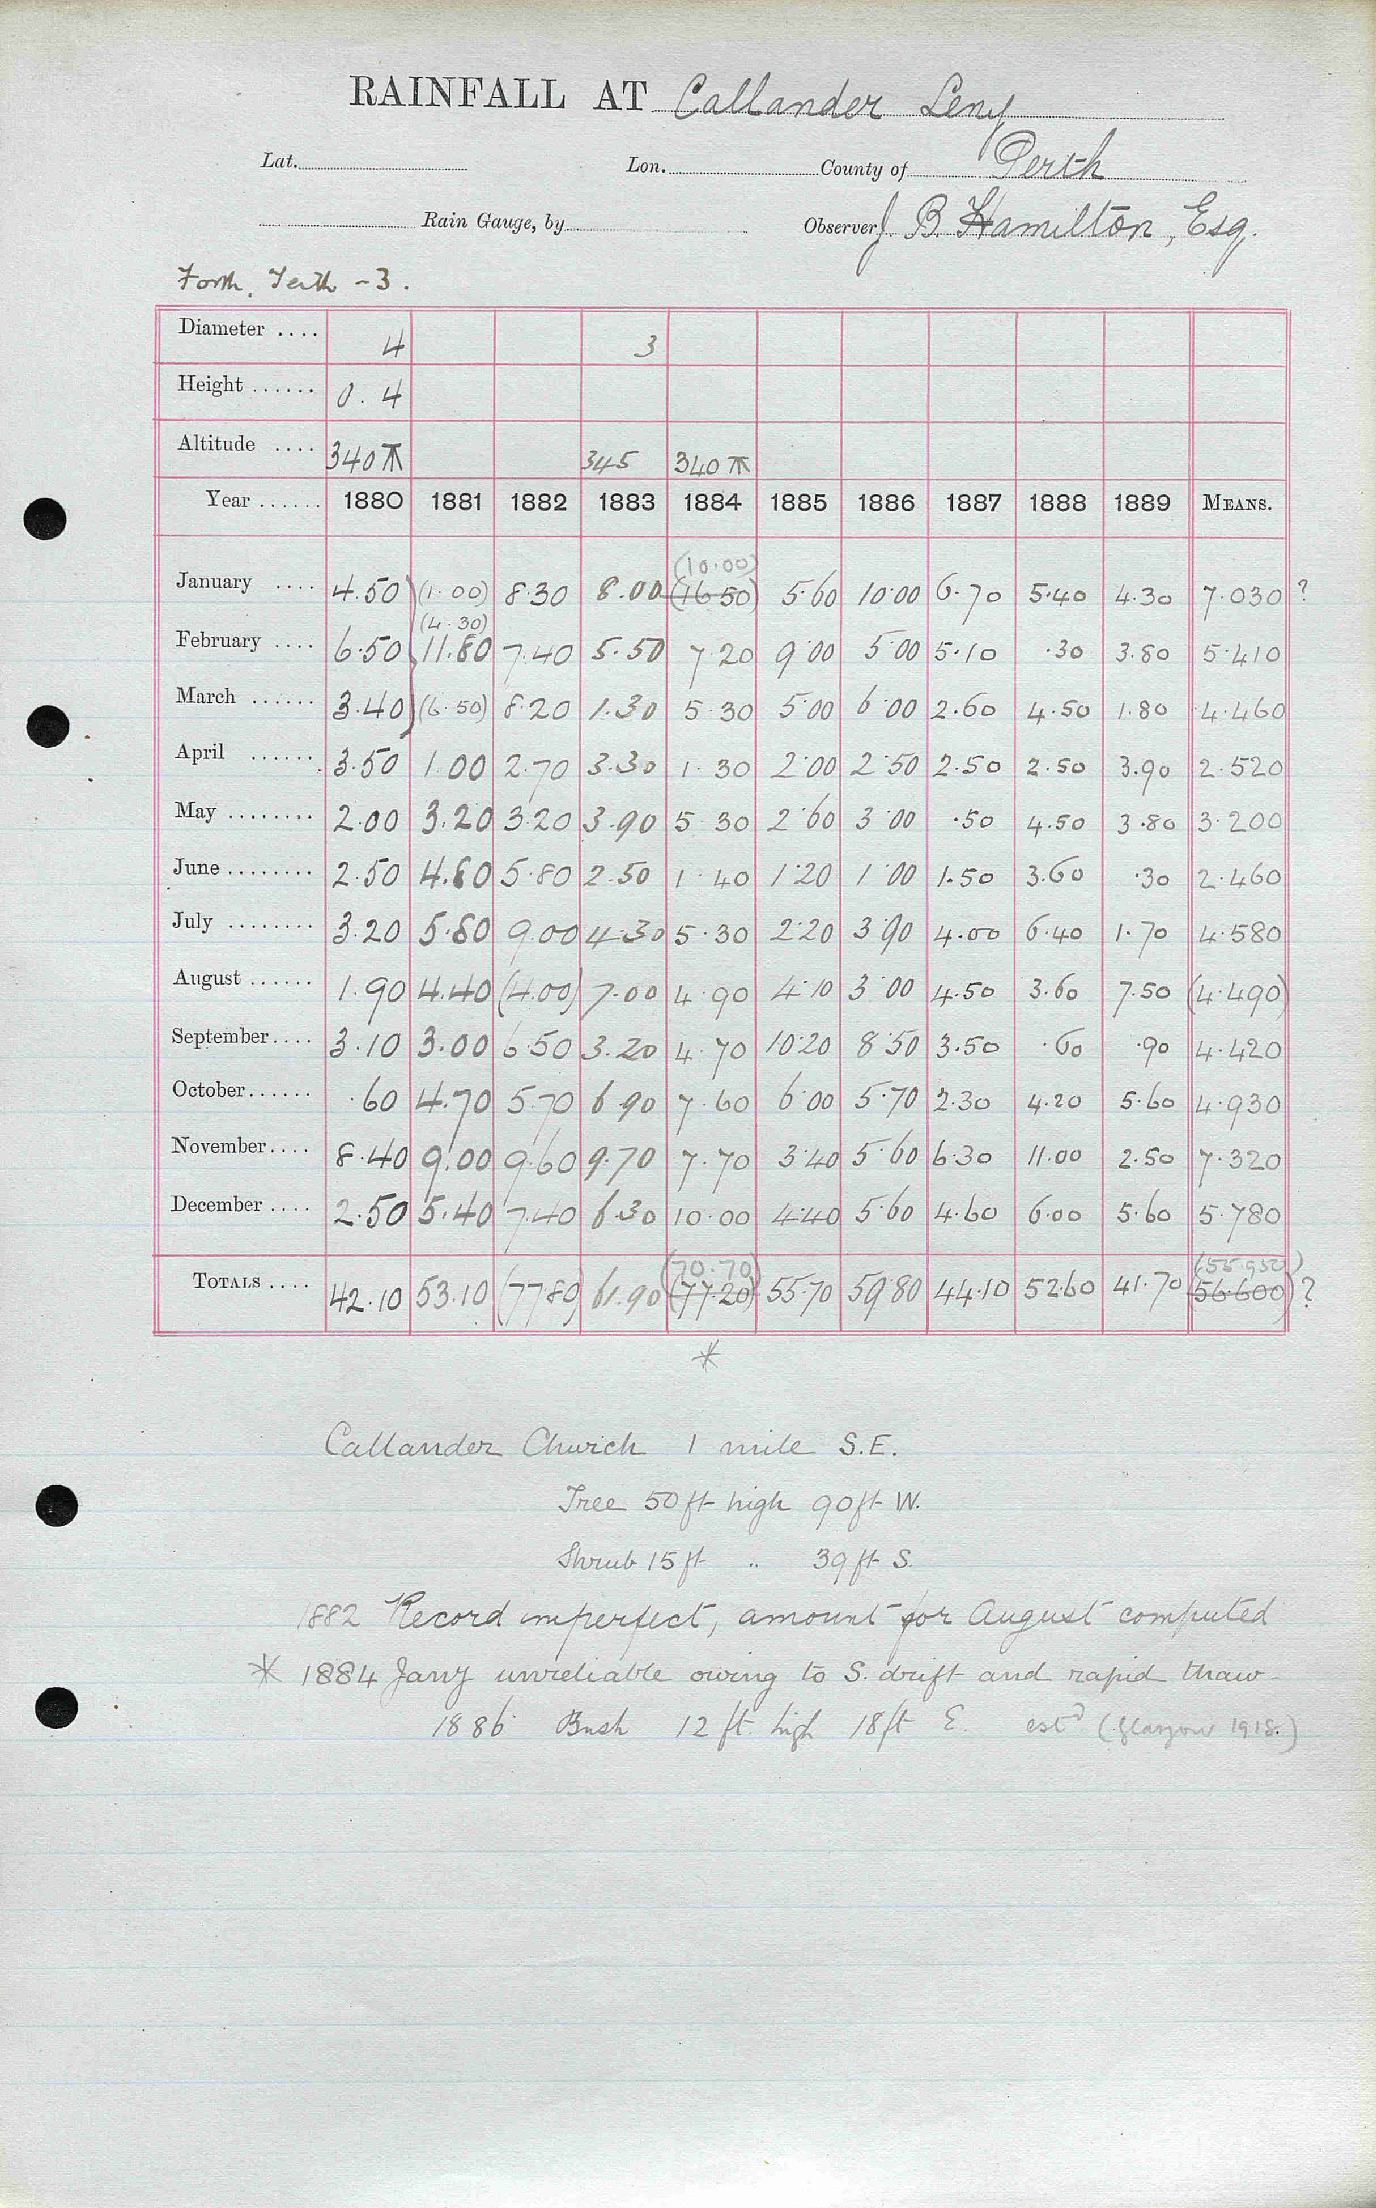 RAINFALL AT Callander Leny
Lat. Lon. County of Perth
Rain Gauge, by Observer J B Hamilton, Esq.
Forth, Teith - 3.
Diameter .... 4 3
Height ...... 0. 4
Altitude .... 340 345 340
Year ...... 1880 1881 1882 1883 1884 1885 1886 1887 1888 1889 MEANS.
(10.00)
January .... 4.50 (1.00) 8.30 8.00 (16.50) 5.60 10.00 6.70 5.40 4.30 7.030 ?
(4.30)
February .... 6.50 11.80 7.40 5.50 7.20 9.00 5.00 5.10 .30 3.80 5.410
March ...... 3.40 (6.50) 8.20 1.30 5.30 5.00 6.00 2.60 4.50 1.80 4.460
April ...... 3.50 1.00 2.70 3.30 1.30 2.00 2.50 2.50 2.50 3.90 2.520
May ........ 2.00 3.20 3.20 3.90 5.30 2.60 3.00 .50 4.50 3.80 3.200
June ........ 2.50 4.80 5.80 2.50 1.40 1.20 1.00 1.50 3.60 .30 2.460
July ........ 3.20 5.80 9.00 4.30 5.30 2.20 3.90 4.00 6.40 1.70 4.580
August ...... 1.90 4.40 (4.00) 7.00 4.90 4.10 3.00 4.50 3.60 7.50 (4.490)
September.... 3.10 3.00 6.50 3.20 4.70 10.20 8.50 3.50 .60 .90 4.420
October...... .60 4.70 5.70 6.90 7.60 6.00 5.70 2.30 4.20 5.60 4.930
November.... 8.40 9.00 9.60 9.70 7.70 3.40 5.60 6.30 11.00 2.50 7.320
December .... 2.50 5.40 7.40 6.30 10.00 4.40 5.60 4.60 6.00 5.60 5.780
(70.70) (55.950)
TOTALS .... 42.10 53.10 (77.80) 61.90 (77.20) 55.70 59.80 44.10 52.60 41.70 56.600) ?
*
Callander Church 1 mile S.E.
Tree 50 ft high 90 ft W.
Shrub 15 ft " 39 ft S.
1882 Record imperfect, amount for August computed
* 1884 Jany unreliable owing to S. drift and rapid thaw
1886 Bush 12 ft high 18 ft E. estd (Glasgow 1918.)